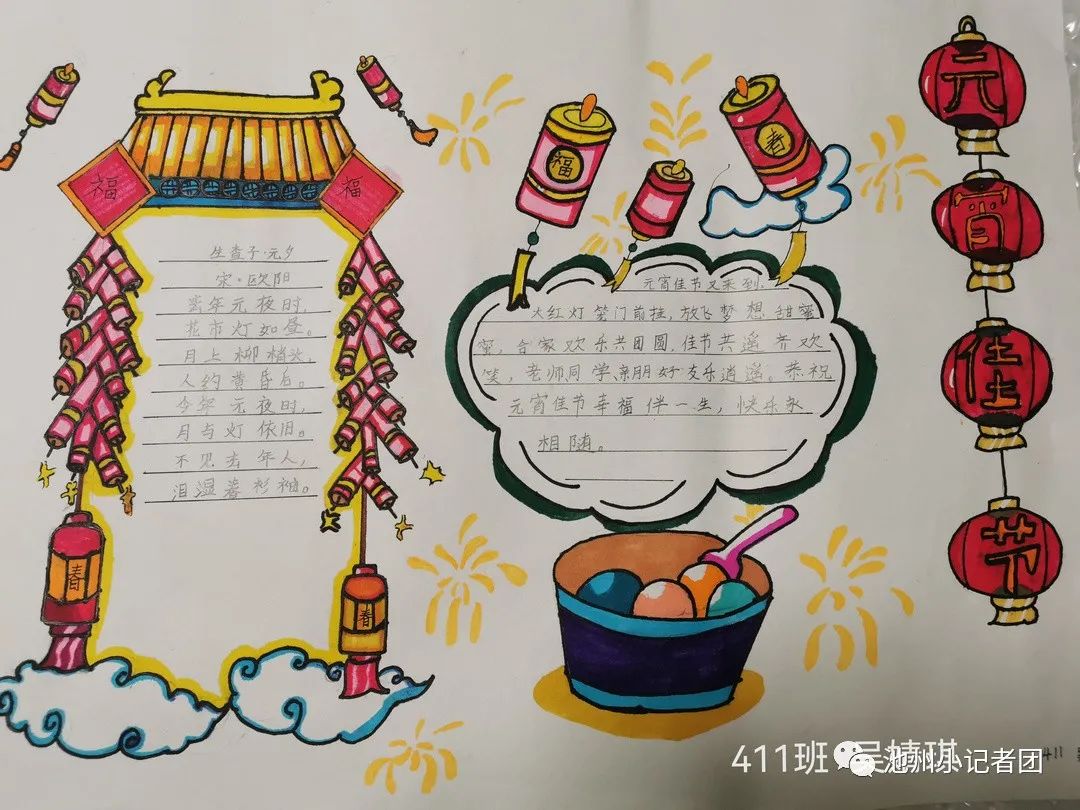 福
福
生查子·元夕
宋·欧阳
当年元夜时,
花市灯如昼。
月上柳梢头,
人约黄昏后。
今年元夜时,
月与灯依旧。
不见去年人,
泪湿春衫袖。
春
春
福
春
元宵佳节又来到.
大红灯笼门前挂,放飞梦想甜蜜
蜜,合家欢乐共团圆.佳节共遥齐欢
笑,老师同学亲朋好友乐逍遥。恭祝
元宵佳节幸福伴一生,快乐永
相随。
元
宵
佳
节
411班
池州小记者团
411